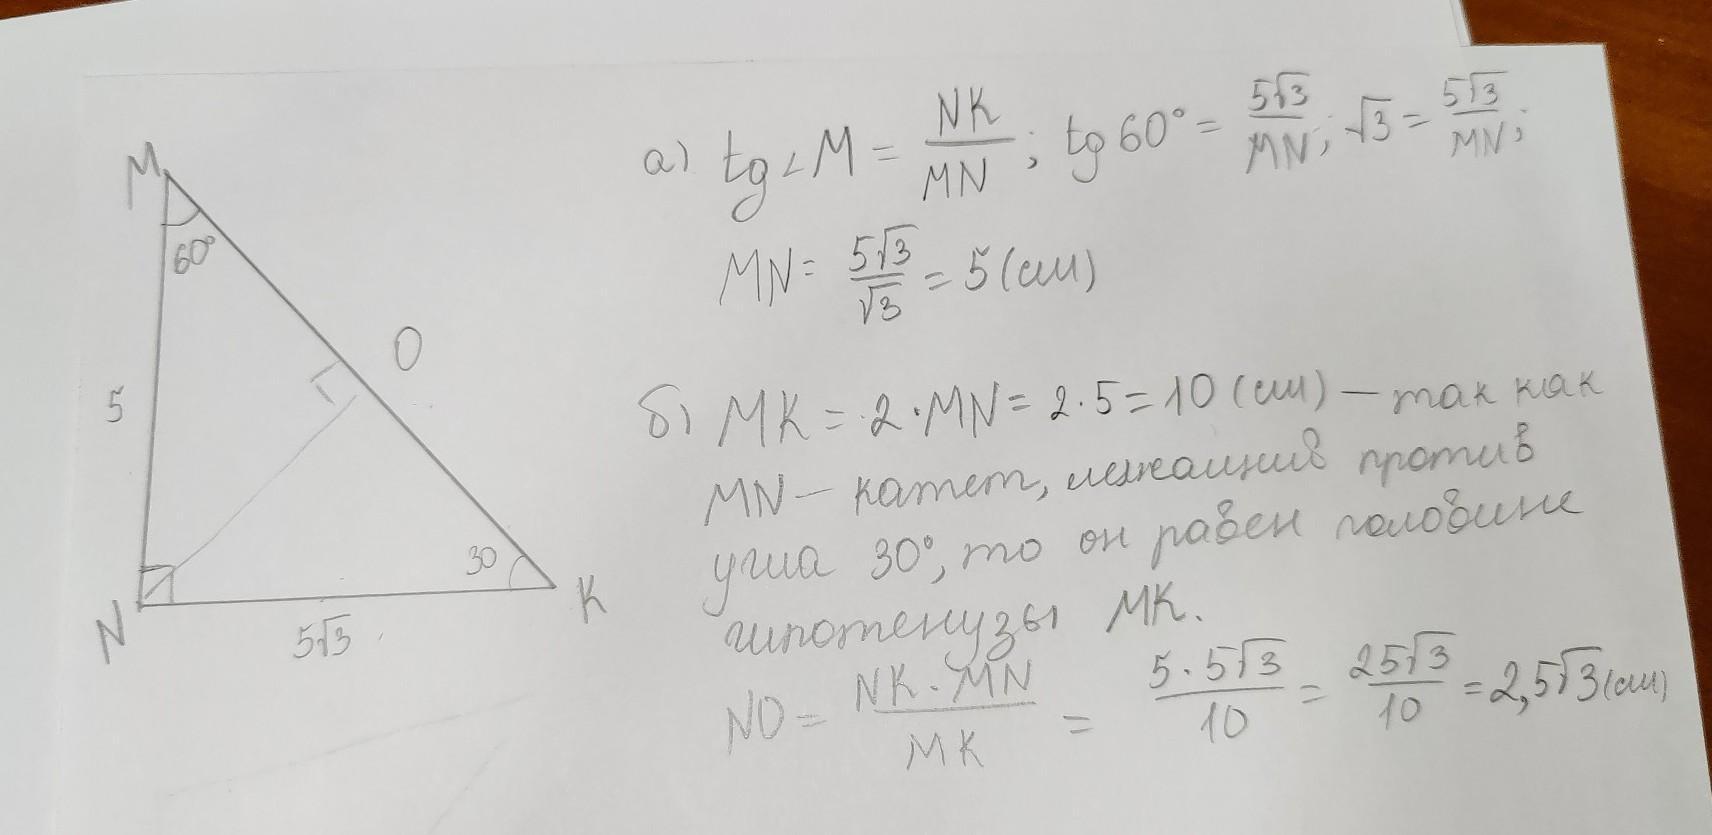 M
60°
O
5
30
N
K
5√3
а) tg∠M = NK/MN; tg 60° = 5√3/MN; √3 = 5√3/MN;
MN = 5√3/√3 = 5 (см)
б) MK = 2·MN = 2·5 = 10 (см) – так как
MN – катет, лежащий против
угла 30°, то он равен половине
гипотенузы MK.
NO = NK·MN/MK = 5·5√3/10 = 25√3/10 = 2,5√3 (см)